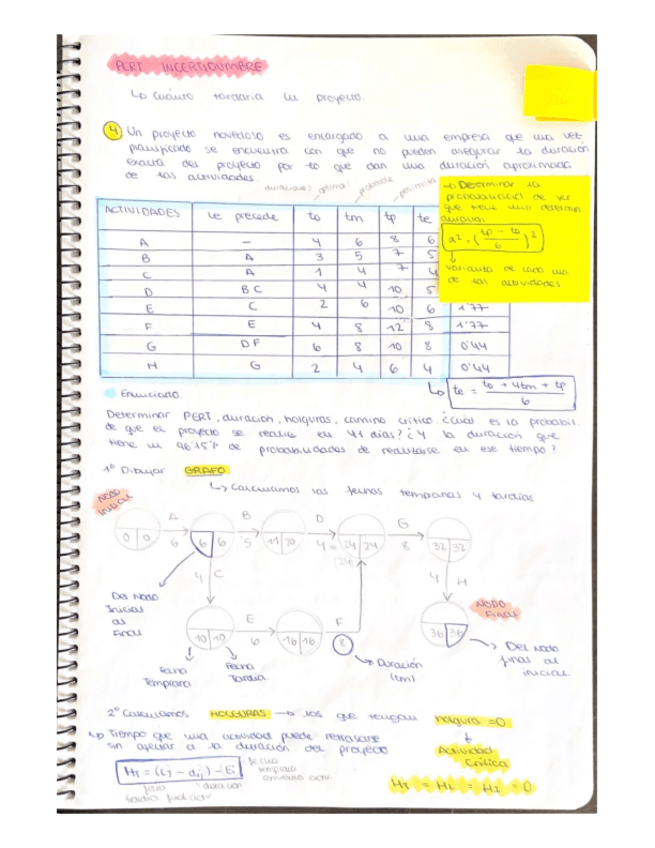 PERT INCERTIDUMBRE
↳ Cuánto tardaría un proyecto.
4 Un proyecto novedoso es encargado a una empresa que una vez
planificado se encuentra con que no pueden asegurar la duración
exacta del proyecto por lo que dan una duración aproximada
de las actividades.
duraciones: optima probable pesimista
ACTIVIDADES Le precede to tm tp te
A - 4 6 8 6
B A 3 5 7 5
C A 1 4 7 4
D B C 4 4 10 5
E C 2 6 10 6 1'77
F E 4 8 12 8 1'77
G D F 6 8 10 8 0'44
H G 2 4 6 4 0'44
→ Determinar la
probabilidad de ver
que tiene una determin.
duración
σ² = (tp - to / 6)²
varianza de cada una
de las actividades
↳ te = to + 4tm + tp / 6
Enunciado.
Determinar PERT, duración, holguras, camino crítico. ¿Cuál es la probabil.
de que el proyecto se realice en 41 días? ¿Y la duración que
tiene un 96'15% de probabilidades de realizarse en ese tiempo?
1º Dibujar GRAFO:
↳ Calculamos las fechas tempranas y tardías
NODO Inicial
A B D G
0 0 6 6 6 5 11 20 4 24 24 8 32 32
(24)
4 C 4 H
Del Nodo
Inicial
al
Final
E F
10 10 6 16 16 8
NODO
Final
36 36
Del nodo
final al
inicial
Fecha
Temprana
Fecha
Tardía
Duración
(tm)
2º Calculamos HOLGURAS → los que tengan holgura = 0
↳ Tiempo que una actividad puede retrasarse
sin afectar a la duración del proyecto
Actividad
Crítica
HT = (Lj - dij) - Ei
fecha
temprana
comienzo activ.
fecha
tardía final activ
duración
HT = HL = HI = 0